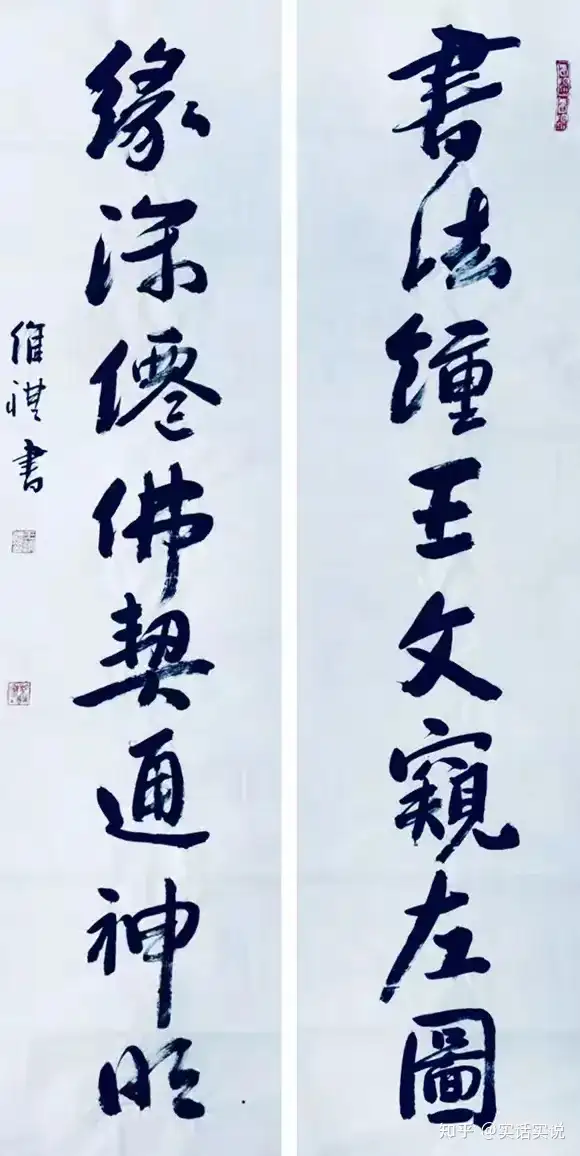 書法鍾王文窺左圖
緣深僊佛契通神明
維祺書
知乎 @实话实说